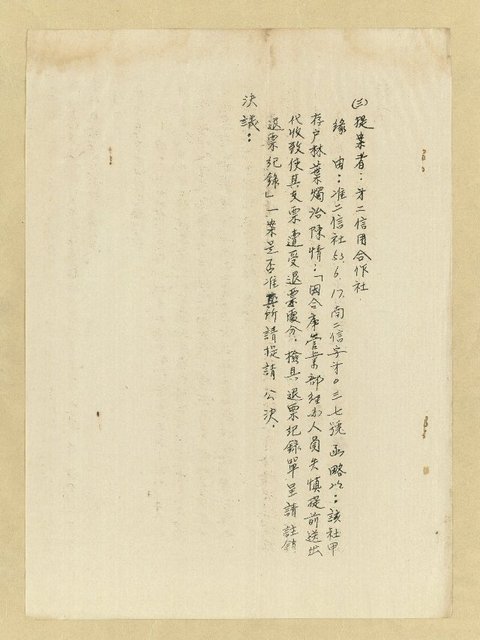 ㈢提案者：第二信用合作社
緣由：准二信社53.6.17.南二信字第〇三七號函略以：該社甲
存戶林葉燭治陳情：「因合庫營業部經辦人員失慎提前送出
代收致使其支票遭受退票處分，檢具退票紀錄單呈請註銷
退票紀錄」一案是否准其所請提請 公決．
決議：